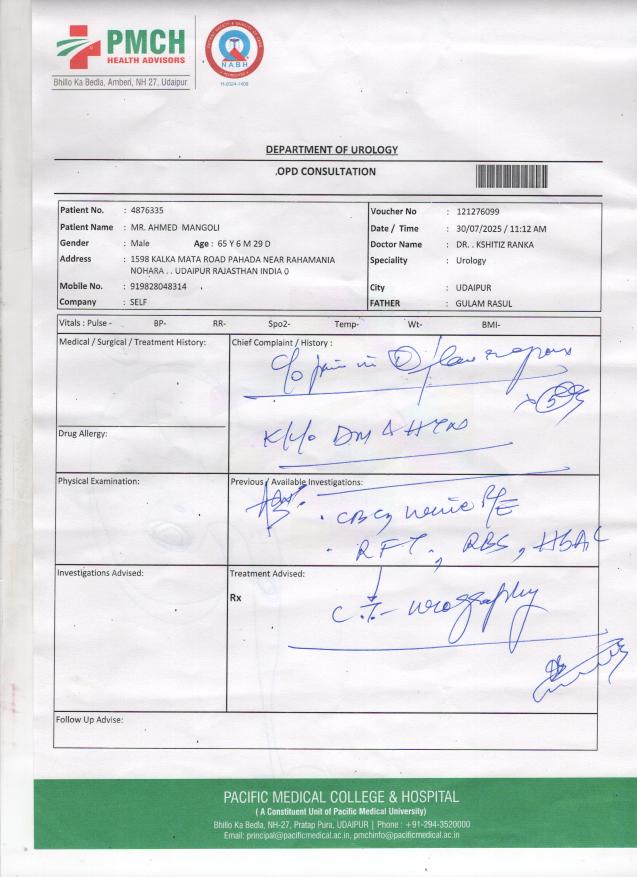 PMCH
HEALTH ADVISORS
Bhillo Ka Bedla, Amberi, NH 27, Udaipur
NABH
DEPARTMENT OF UROLOGY
.OPD CONSULTATION
Patient No. : 4876335
Patient Name : MR. AHMED MANGOLI
Gender : Male Age : 65 Y 6 M 29 D
Address : 1598 KALKA MATA ROAD PAHADA NEAR RAHAMANIA
NOHARA . . UDAIPUR RAJASTHAN INDIA 0
Mobile No. : 919828048314
Company : SELF
Voucher No : 121276099
Date / Time : 30/07/2025 / 11:12 AM
Doctor Name : DR. . KSHITIZ RANKA
Speciality : Urology
City : UDAIPUR
FATHER : GULAM RASUL
Vitals : Pulse - BP- RR- Spo2- Temp- Wt- BMI-
Medical / Surgical / Treatment History:
Chief Complaint / History :
c/o pain in
Drug Allergy:
K/c/o DM
Physical Examination:
Previous / Available Investigations:
Adv.
. CBC, urine R/E
. RFT, RBS, HbA1C
Investigations Advised:
Treatment Advised:
Rx
C.T- urography
Follow Up Advise:
PACIFIC MEDICAL COLLEGE & HOSPITAL
( A Constituent Unit of Pacific Medical University)
Bhillo Ka Bedla, NH-27, Pratap Pura, UDAIPUR | Phone : +91-294-3520000
Email: principal@pacificmedical.ac.in, pmchinfo@pacificmedical.ac.in